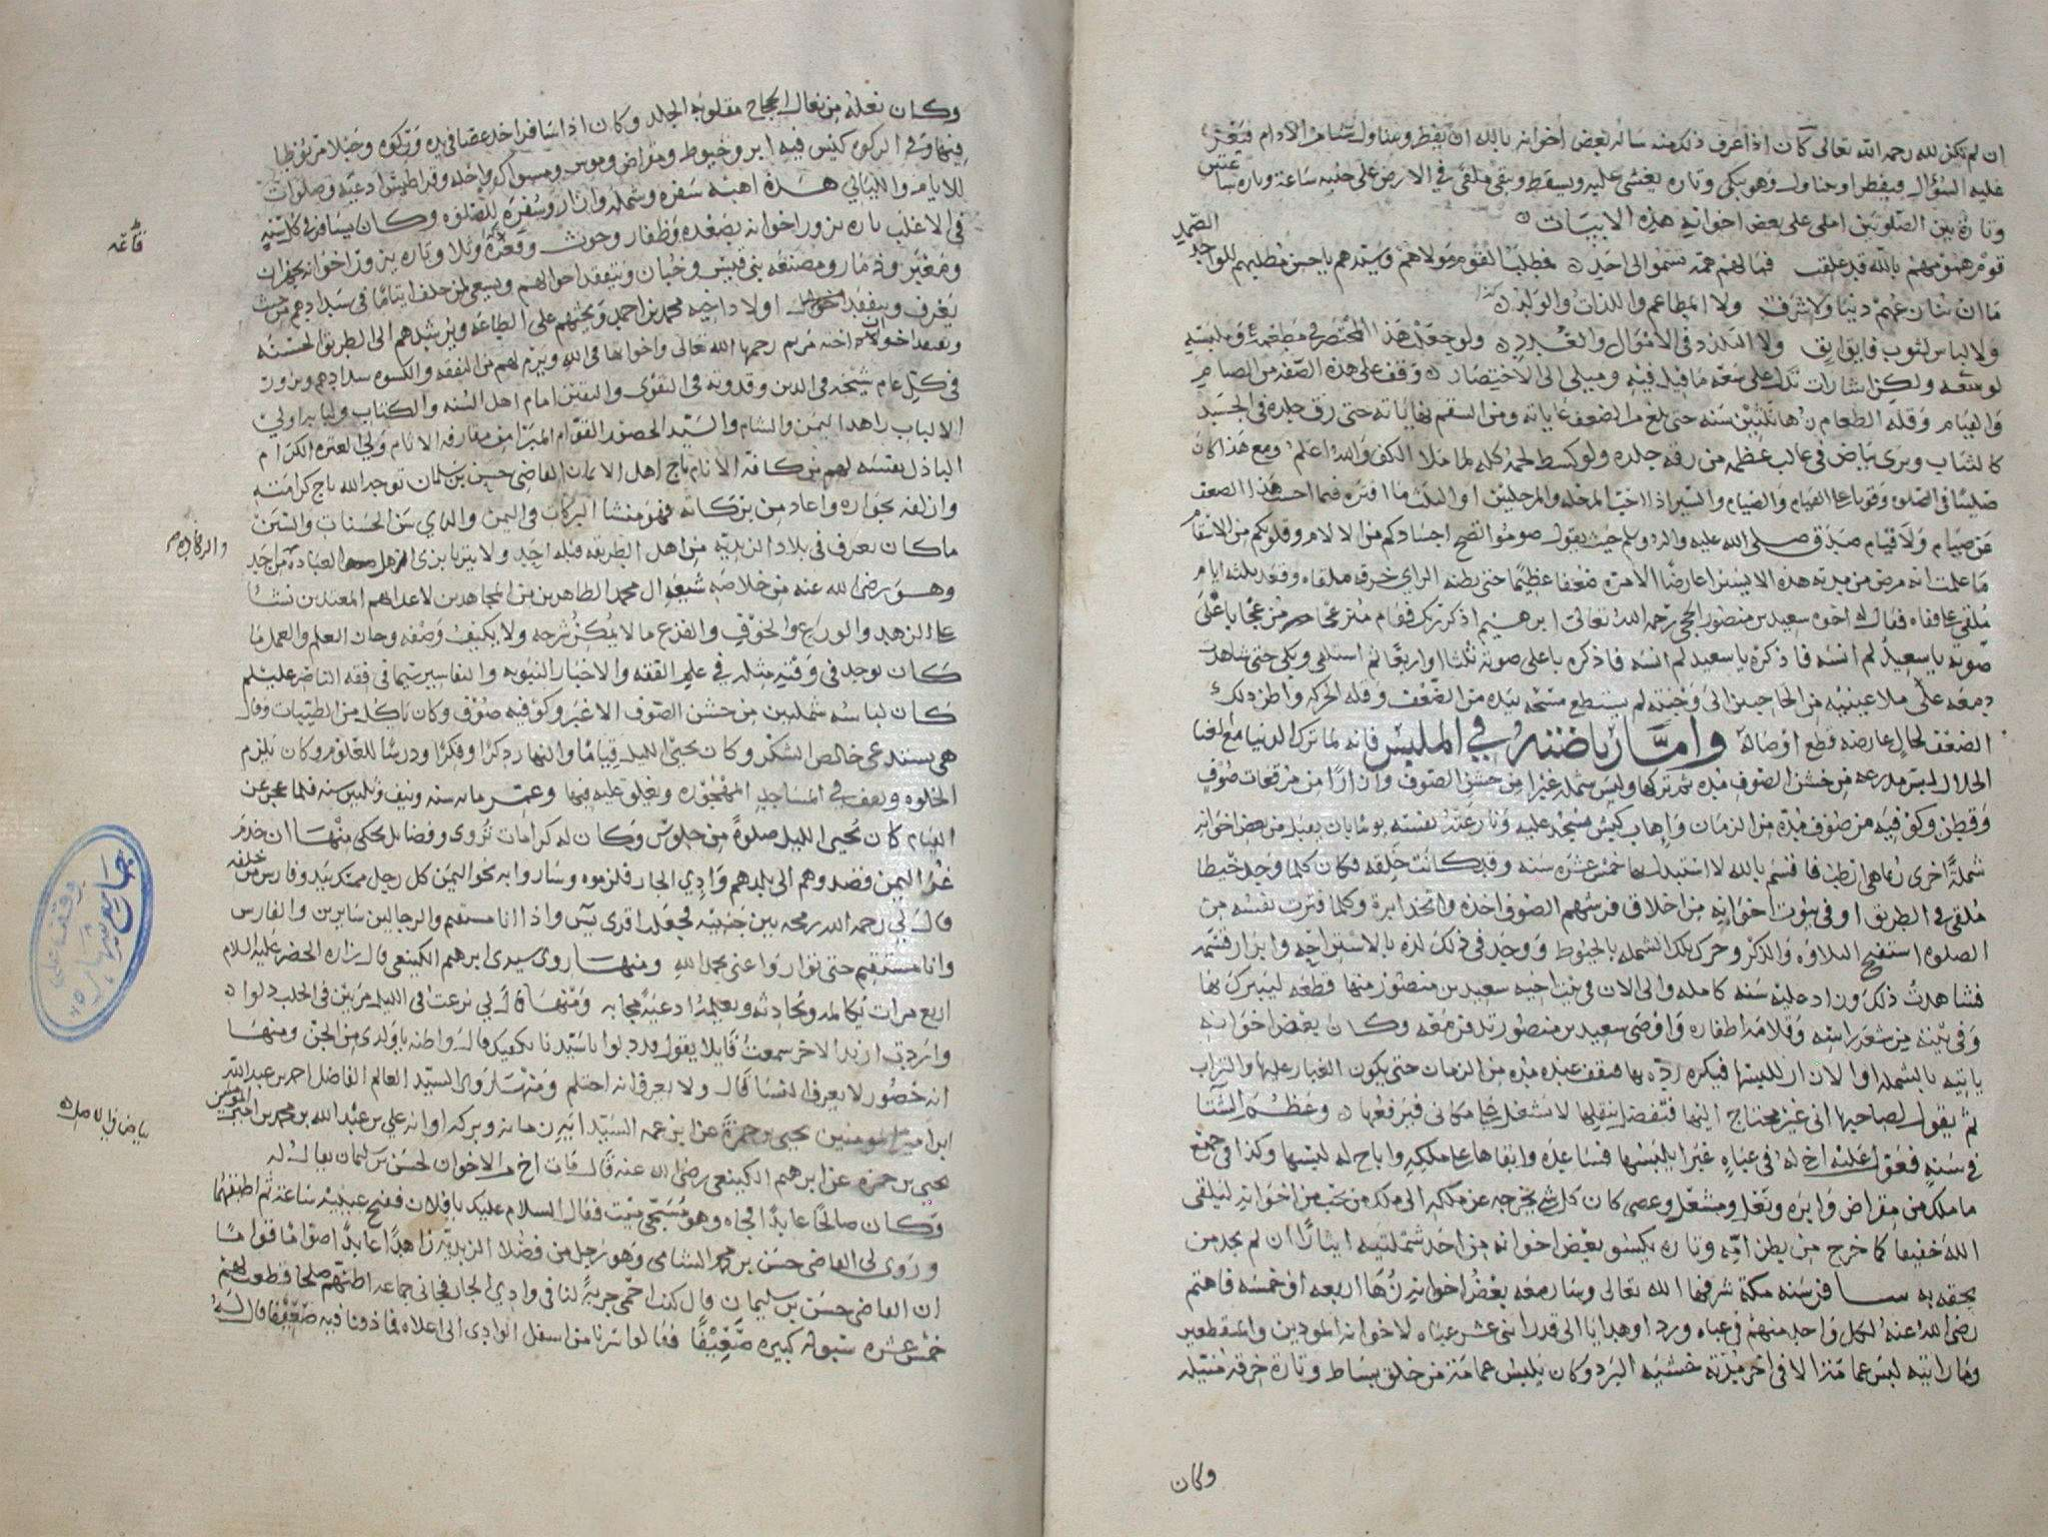 ان لم تكن لله رحمه الله تعالى كان اذا عرف ذلك منه ساله بعض اخوانه بالله ان يفطر ويتناول شيئا من الادام فيعز
عليه السؤال فيفطر او يتناول وهو يبكي وتاره يغشى عليه ويسقط ويبقى ملقى في الارض على جنبه ساعة وتاره ساعتين
وتارة بين الصلوتين املى على بعض اخوانه هذه الابيات
قوم همومهم بالله قد علقت فما لهم همة تسموا الى احد فمطلب القوم مولاهم وسيدهم يا حسن مطلبهم للواحد الصمد
ما ان تنازعهم دنيا ولا شرف ولا المطاعم واللذات والولد
ولا لباس لثوب فايق انق ولا التلذذ في الاموال والعدد ولو جعل هذا المختصر في مطعمه وملبسه
لوسعه ولكن اشارات تدلك على سعة ما قيل فيه وميلي الى الاختصار وقف على هذه الصفه من الصيام
والقيام وقلة الطعام زها ثلثين سنه حتى بلغ من الضعف غاياته ومن السقم نهاياته حتى رق جلده في الجسد
كالشاب ويرى بياض في غالب عظمه من رقه جلده ولو كسط لحمه كله لما ملا الكف والله اعلم ومع هذا كان
صليبا في الصلوه وقويا على القيام والصيام والسير اذا اختار المرحله والمرحلتين او الثلث ما افتره فيما احسب هذا الضعف
عن صيام ولا قيام صدق صلى الله عليه واله وسلم حيث يقول صوموا تصح اجسادكم من الالام وقلوبكم من الاسقام
ما علمت انه مرض من مدته هذه الا يسيرا عارضا الا مرة ضعفا عظيما حتى بطنه الراي خرقه ملقاه وقعد ثلثه ايام
ملقى على قفاه فقال له اخوه سعيد بن منصور الحجي رحمه الله تعالى ابرهيم اذكر ربك فقام منزعجا من عجا باعلى
صوته يا سعيد لم انسه فاذكره يا سعيد لم انسه فاذكره باعلى صوته ثلثا او اربعا ثم استلقى وبكى حتى شاهدت
دمعه على ملا عينيه من الحاجبين الى وجنته لم يستطع مسحه بيده من الضعف وقلة الحركه واظن ذلك
الضعف لحال عارضه قطع اوصاله واما رياضته في الملبس فانه لما ترك الدنيا مع
الحلال لبس مدرعه من خشن الصوف مده ثم تركها ولبس شمله غبرا من خشن الصوف وازارا من مرقعات صوف
وقطن وكوفيه من صوف مدة من الزمان واهاب كبش مسجد عليه ونازعته نفسه يوما بان يقبل من بعض اخوانه
شملة اخرى زهاهي انظف فاقسم بالله لا استبدل بها خمس عشرة سنه وقد كانت خلقه فكان كلما وجد خيطا
ملقى في الطريق او في بيوت اخوانه من اخلاق فرشهم الصوف اخذه واتخذ ابرة وكلما فترت نفسه من
الصلوة استفتح التلاوه والذكر وحرك تلك الشمله بالخيوط ووجد في ذلك لذه بالاستراحه وابرار قسمه
فشاهدت ذلك وزاد عليه سنه كامله والى الان في بيت اخيه سعيد بن منصور منها قطعه ليتبرك بها
وفي بيته من شعر راسه وقلامة اظفاره واوصى سعيد بن منصور تدفن معه وكان بعض اخوانه
ياتيه بالشمله او الازار ليلبسها فيكره رده بها فتقف عنده مده من الزمان حتى يكون الغبار عليها والتراب
ثم يقول لصاحبها انى غير محتاج اليها فتفضل بنقلها لا تشغل على مكاني فيرفعها وعظم الشتا
في سنه فعول عليه اخ له في عباه غبرا يلبسها فساعده وابقاها على ملكه واباح له لبسها وكذا في جميع
ما ملك من مقراض وابره ونعل ومشعل وعصى كان كل شي يخرجه عن ملكه الى ملك من يحب من اخوانه ليلقى
الله خفيفا كما خرج من بطن امه وتاره يكسو بعض اخوانه من احد شملتيه ايثارا ان لم يجد من
يحقه به سافر سنه مكة شرفها الله تعالى وسار معه بعض اخوانه زها اربعه او خمسه فاهتم
رضي الله عنه لكل واحد منهم في عباه ورداو هدايا الى قدر اثنى عشر عباه لاخوانه المودين والمنقطعين
وما رايته لبس عمامة الا في اخر مدته خشيه البرد وكان يلبس عمامة من خلق بساط وتارة خرقه منتيله
وكان
وكان نعله من نعال الحجاج مقلوبه الجلد وكان اذا سافر اخذ عصا في يده وركوه وحبلا مربوطا
فيها وفي الركوه كيس فيه ابر وخيوط ومقراض وموس ومسواك وقراطيس ادعيه وصلوات
للايام والليالي هذه اهبة سفره وشمله وازار وسفرة للصلوه وكان يسافر في كل سنه
في الاغلب تاره يزور اخوانه بصعده وظفار وحوث وتاره يزور اخوانه بخبان
ومغبر وذمار ومصنعه بني قيس وخبان ويتفقد احوالهم ويسعى لمن خلف ايتاما في سدادهم من حيث
يعرف ويتفقد احوال اولاد اخيه محمد بن احمد ويحثهم على الطاعه ويرشدهم الى الطريق الحسنه
ويتفقد اخوات اخته مريم رحمها الله تعالى واخواتها في الله ويبرم لهم من النفقه والكسوه سدادهم ويزور
في كل عام شيخه في الدين وقدوته في التقوى واليقين امام اهل السنه والكتاب ولباب اولي
الالباب زاهد اليمن والشام والسيد الحصور القوام المبرا من مقارفه الاثام ولي العتره الكرام
الباذل نفسه لهم من كافة الانام تاج اهل الايمان القاضي حسن بن سلمان توجه الله تاج كرامته
وازلفه بجواره واعاد من بركاته فهو منشا البركات في اليمن والداعي بين الحسنات والسنن
ما كان يعرف في بلاد الزيديه من اهل الطريقه قبله احد ولا يتزيا بزي اهل العباده من احد
وهو رضي الله عنه من خلاصه شيعه ال محمد الطاهرين من المجاهدين لاعدائهم المعتدين نشا
على الزهد والورع والخوف والفزع ما لا يمكن شرحه ولا يكيف وصفه وحاز العلم والعمل ما
كان يوجد في وقته مثله في علم الفقه والاخبار النبويه والتفاسير سيما في فقه الناصر عليلم
كان لباسه شملتين من خشن الصوف الاغبر وكوفيه صوف وكان ياكل من الطيبات وقال
هي يستدعى خالص الشكر وكان يحيي الليل قياما والنهار ذكرا وفكرا ودرسا للعلوم وكان يلزم
الخلوه ويقف في المساجد المهجوره ويغلق عليه فيها وعمر مائه سنه ونيف وثلثين سنه فلما عجز عن
القيام كان يحيى الليل صلوة من جلوس وكان له كرامات تروى وفضايل تحكى منها ان خدم
غز اليمن قصدوهم الى بلدهم وادي الجار فلزموه وساروا به نحو اليمن كل رجل ممسك بيد وفارس من خلفه
قال لي رحمه الله رمحه بين جنبيه فجعل اقرى يس واذا انا مستقيم والرجالين سايرين والفارس
وانا مستقيم حتى تواروا عني بحمد الله ومنها روى سيدى ابرهيم الكينعي قال زاره الخضر عليه السلام
اربع مرات يكالمه ويحادثه ويعلمه ادعيه مجابه ومنها قال لي نزعت في الليل مرتين في الجلب دلوا
واردت ازيد الاخر سمعت قايلا يقول دلوا يا سيدنا يكفيك قال واظنه يا ولدى من الجن ومنها
انه حصور لا يعرف النسا قال ولا يعرف انه احتلم ومنها روى السيد العالم الفاضل احمد بن عبد الله
ابن امير المومنين يحيى بن حمزة عن ابن عمه السيد وبركه اوانه علي بن عبد الله بن محمد بن امير المومنين
يحيى بن حمزه عن ابرهيم الكينعي رضي الله عنه قال مات اخ من الاخوان لحسن بن سليمان يقال له
وكان صالحا عابدا فجاه وهو مسجى ميت فقال السلام عليك يا فلان ففتح عينيه ساعة ثم اطبقهما
وروى لي القاضي حسن بن محمد الشامي وهو رجل من فضلا الزيديه زاهدا عابدا صواما قواما
ان القاضي حسن بن سليمان قال كنت احمي جربة لنا في وادي الجار فجاني جماعه اظنهم صلحا فقطعت لهم
خمس عشره سبوله كبيره ضعيفا فقالوا سرنا من اسفل الوادي الى اعلاه فماذونا فيه ضعيفا قال
قاعه
والرفاده
بياض في الاصل